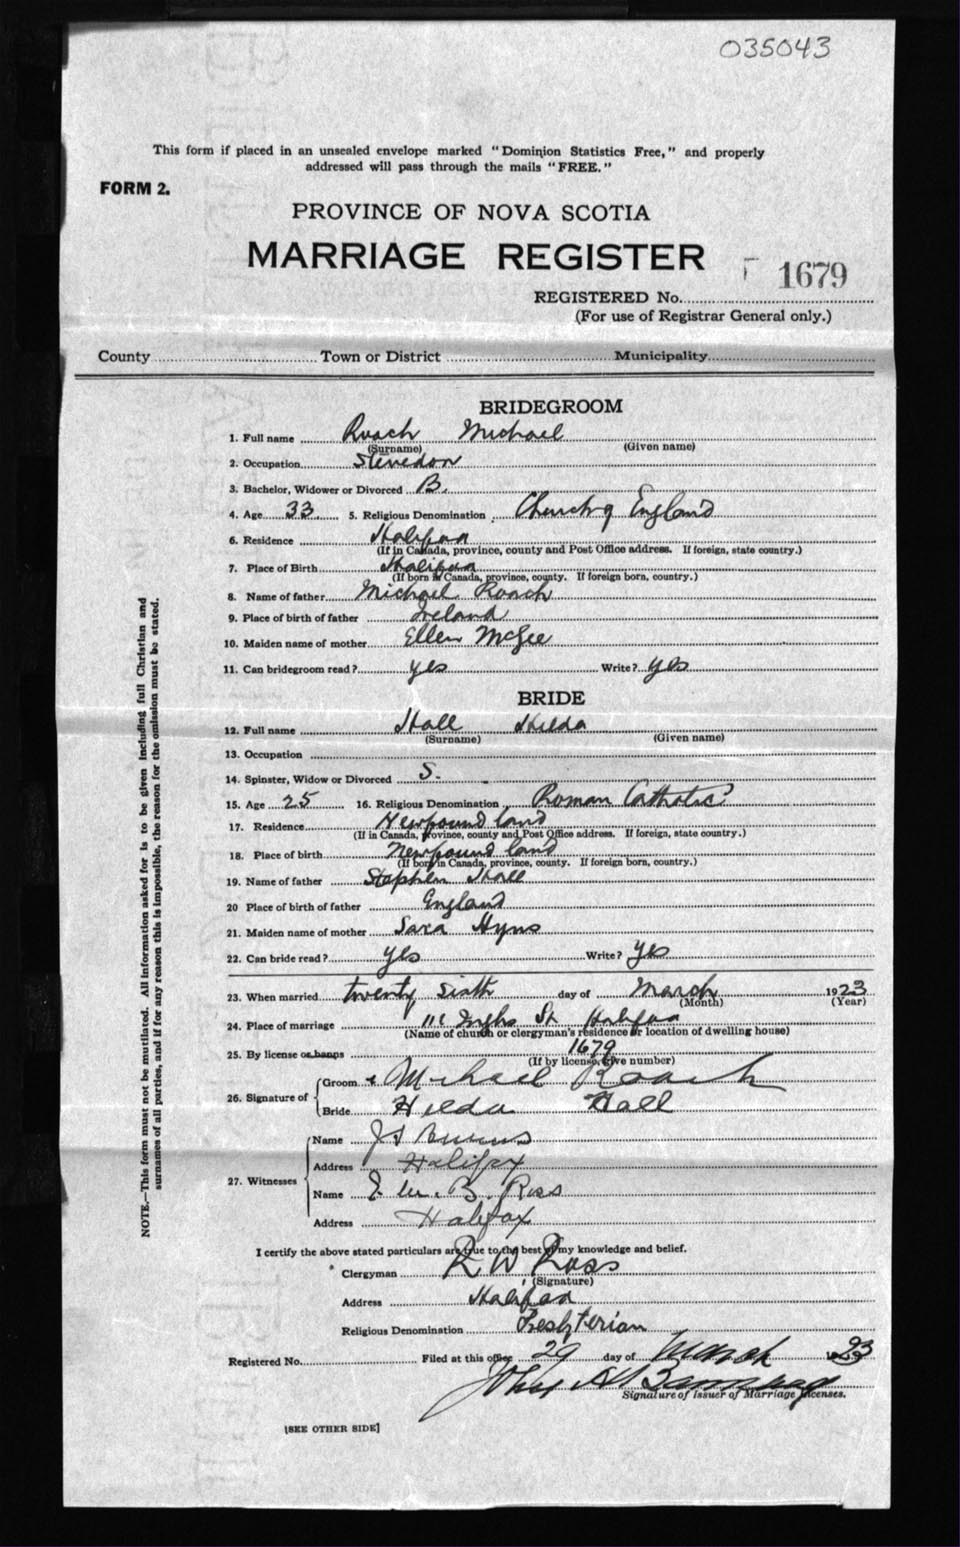 035043
This form if placed in an unsealed envelope marked "Dominion Statistics Free," and properly
addressed will pass through the mails "FREE."
FORM 2.
PROVINCE OF NOVA SCOTIA
MARRIAGE REGISTER
1679
REGISTERED No.
(For use of Registrar General only.)
County Town or District Municipality
BRIDEGROOM
1. Full name Roach Michael
(Surname) (Given name)
2. Occupation Stevedor
3. Bachelor, Widower or Divorced B.
4. Age 33 5. Religious Denomination Church of England
6. Residence Halifax
(If in Canada, province, county and Post Office address. If foreign, state country.)
7. Place of Birth Halifax
(If born in Canada, province, county. If foreign born, country.)
8. Name of father Michael Roach
9. Place of birth of father Ireland
10. Maiden name of mother Ellen McGee
11. Can bridegroom read? yes Write? yes
BRIDE
12. Full name Hall Hilda
(Surname) (Given name)
13. Occupation
14. Spinster, Widow or Divorced S.
15. Age 25 16. Religious Denomination Roman Catholic
17. Residence Newfoundland
(If in Canada, province, county and Post Office address. If foreign, state country.)
18. Place of birth Newfoundland
(If born in Canada, province, county. If foreign born, country.)
19. Name of father Stephen Hall
20 Place of birth of father England
21. Maiden name of mother Sara Hyns
22. Can bride read? yes Write? yes
23. When married twenty sixth day of March 1923
(Month) (Year)
24. Place of marriage St. Halifax
(Name of church or clergyman's residence or location of dwelling house)
25. By license or banns 1679
(If by license, give number)
26. Signature of Groom Michael Roach
Bride Hilda Hall
27. Witnesses
Name
Address Halifax
Name B. Ross
Address Halifax
I certify the above stated particulars are true to the best of my knowledge and belief.
Clergyman R W Ross
(Signature)
Address Halifax
Religious Denomination Presbyterian
Registered No. Filed at this office 29 day of March 1923
Signature of Issuer of Marriage Licenses.
[SEE OTHER SIDE]
NOTE.—This form must not be mutilated. All information asked for is to be given including full Christian and
surnames of all parties, and if for any reason this is impossible, the reason for the omission must be stated.